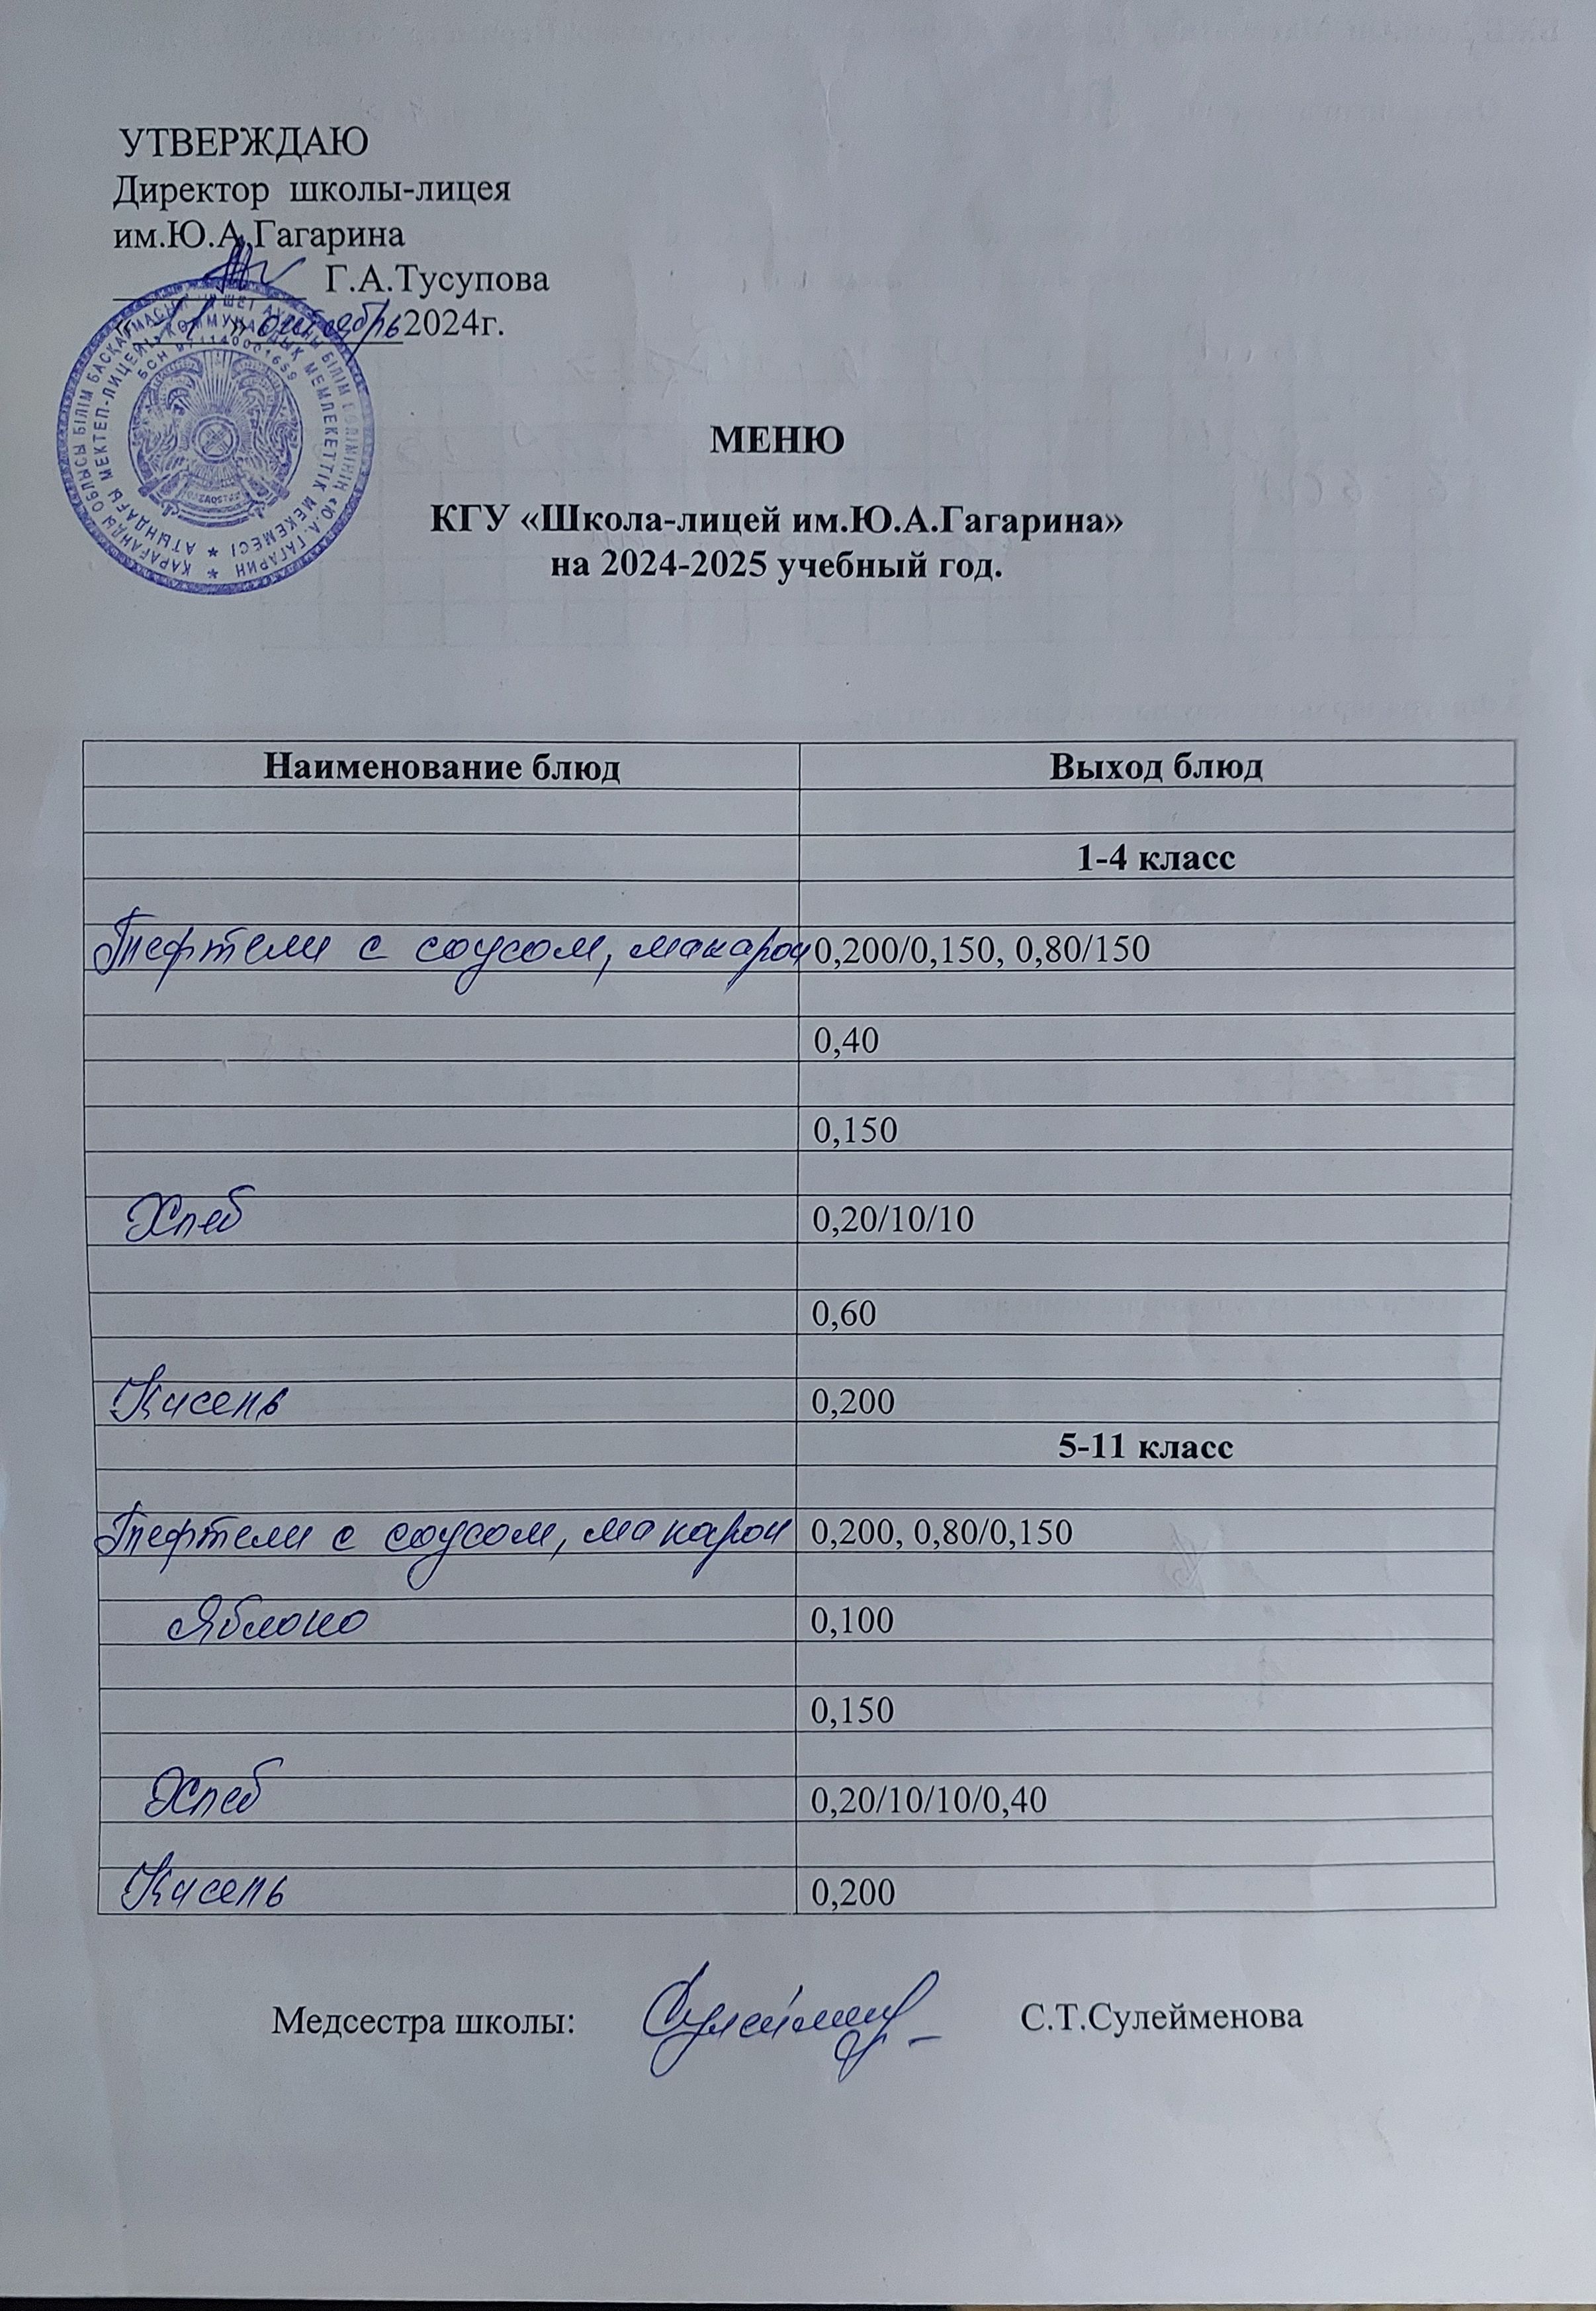 УТВЕРЖДАЮ
Директор школы-лицея
им.Ю.А.Гагарина
Г.А.Тусупова
«11» октябрь 2024г.
МЕНЮ
КГУ «Школа-лицей им.Ю.А.Гагарина»
на 2024-2025 учебный год.
Наименование блюд Выход блюд
1-4 класс
Тефтели с соусом, макарон 0,200/0,150, 0,80/150
0,40
0,150
Хлеб 0,20/10/10
0,60
Кисель 0,200
5-11 класс
Тефтели с соусом, макарон 0,200, 0,80/0,150
Яблоко 0,100
0,150
Хлеб 0,20/10/10/0,40
Кисель 0,200
Медсестра школы: С.Т.Сулейменова